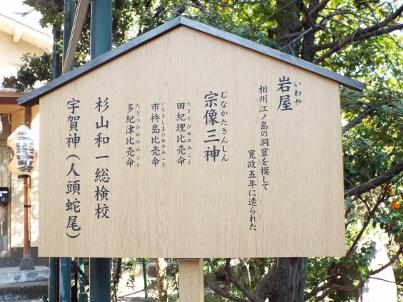 いわや
岩屋
相州江ノ島の洞窟を模して
寛政五年に造られた
むなかたさんしん
宗像三神
たきりひめのみこと
田紀理比売命
いちきしまひめのみこと
市杵島比売命
たきつひめのみこと
多紀津比売命
杉山和一総検校
宇賀神（人頭蛇尾）